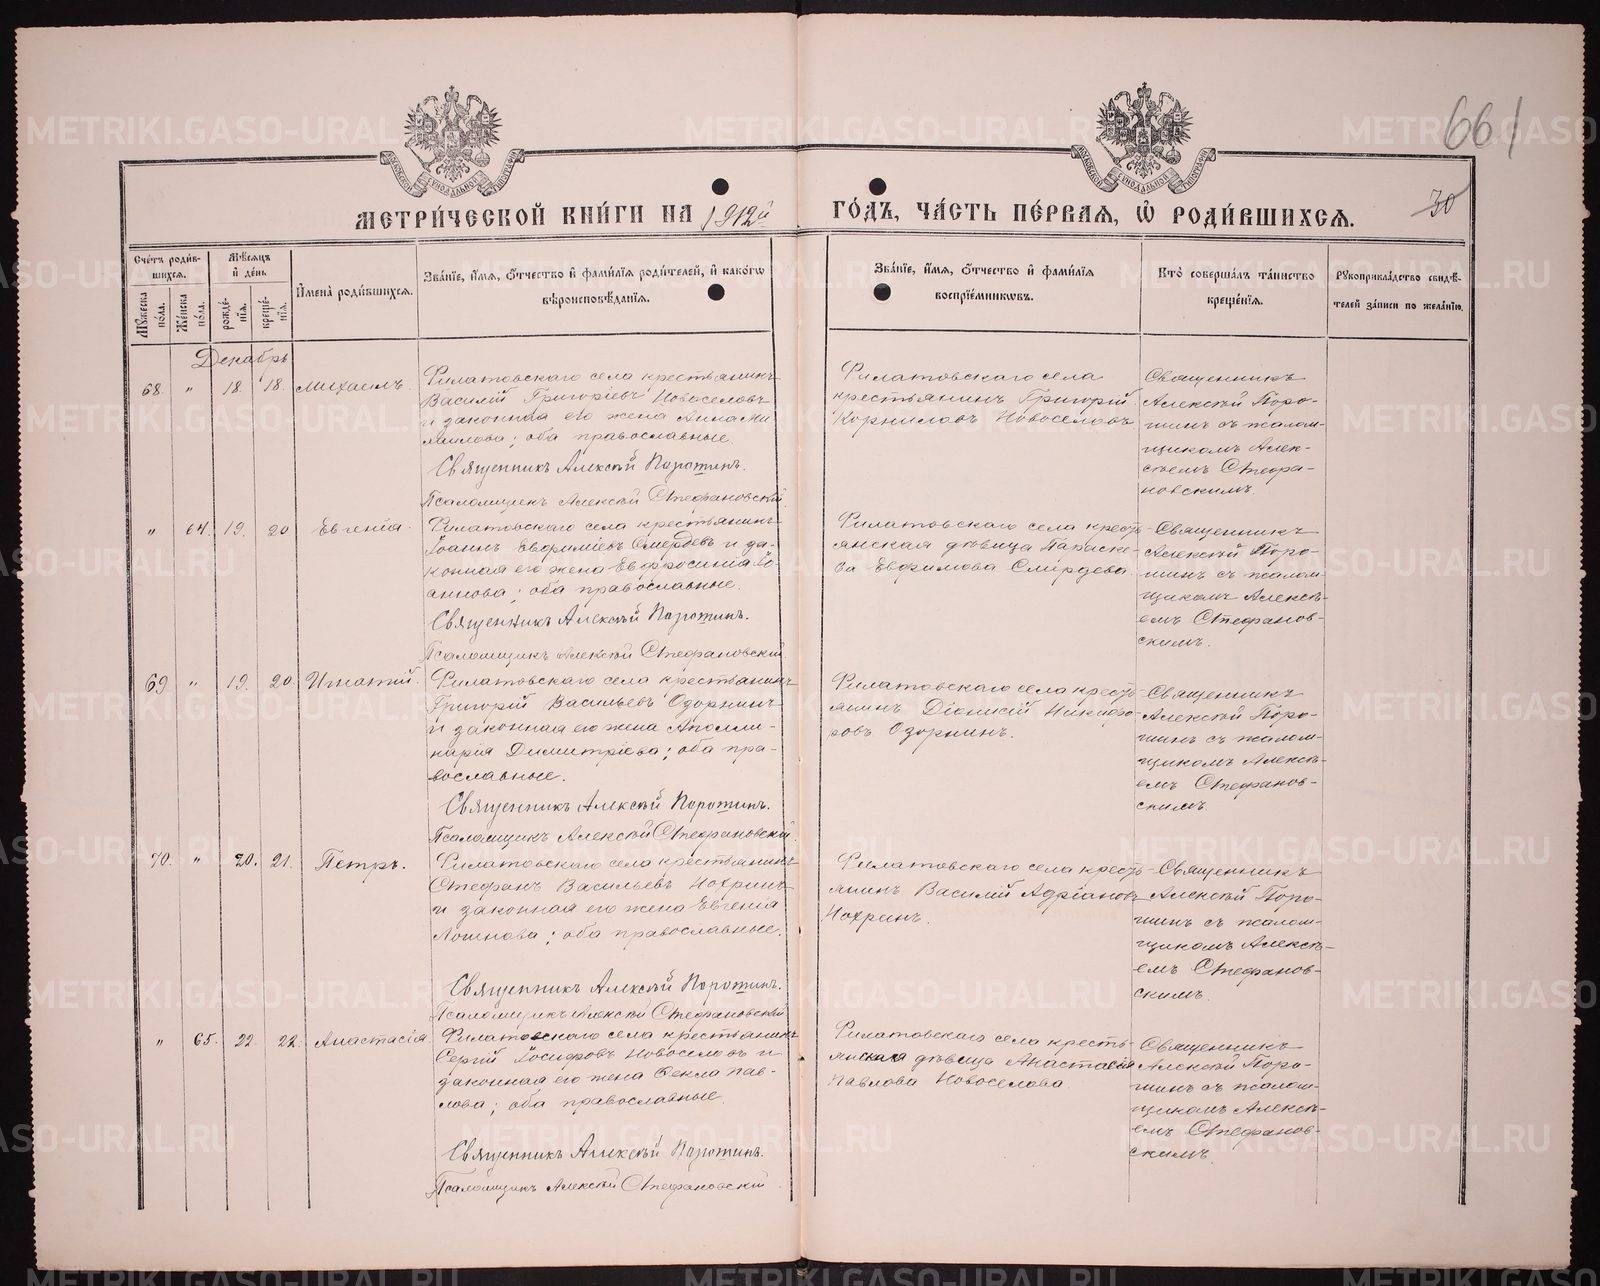 661
МЕТРИ́ЧЕСКОЙ КНИ́ГИ НА 1912й ГО́ДЪ, ЧА́СТЬ ПЕ́РВАЯ, Ѡ РОДИ́ВШИХСЯ.
30
Сче́тъ роди́в-
шихся.
Мꙋжеска по́ла.
Же́нска по́ла.
Мѣ́сяцъ и҆ де́нь
рожде́-
нїя.
креще́-
нїя.
И҆мена̀ роди́вшихся.
Зва́нїе, и҆́мя, ѻ҆́тчество и҆ фами́лїя роди́телей, и҆ како́гѡ
вѣроисповѣ́данїя.
Зва́нїе, и҆́мя, ѻ҆́тчество и҆ фами́лїя
воспрїе́мникѡвъ.
Кто̀ соверша́лъ та́инство
креще́нїя.
Рꙋкоприкла́дство свидѣ́-
телей за́писи по жела́нїю.
Декабрь
68. " 18. 18. Михаилъ.
Филатовскаго села крестьянинъ
Василій Григоріевъ Новоселовъ
и законная его жена Анна Ми-
хаилова; оба православные.
Священникъ Алексѣй Порошинъ.
Псаломщикъ Алексѣй Стефановскій
Филатовскаго села
крестьянинъ Григорій
Корниловъ Новоселовъ
Священникъ
Алексѣй Поро-
шинъ съ псалом-
щикомъ Алек-
сѣемъ Стефа-
новскимъ.
" 64. 19. 20 Евгенія.
Филатовскаго села крестьянинъ
Іоаннъ Евфиміевъ Смердевъ и за-
конная его жена Евфросинія Іо-
аннова; оба православные.
Священникъ Алексѣй Порошинъ.
Псаломщикъ Алексѣй Стефановскій.
Филатовскаго села кресть-
янская дѣвица Параске-
ва Евфимова Смердева
Священникъ
Алексѣй Поро-
шинъ съ псалом-
щикомъ Алексѣ-
емъ Стефанов-
скимъ.
69 " 19. 20 Игнатій.
Филатовскаго села крестьянинъ
Григорій Васильевъ Озорнинъ
и законная его жена Аполли-
нарія Димитріева; оба пра-
вославные.
Священникъ Алексѣй Порошинъ.
Псаломщикъ Алексѣй Стефановскій.
Филатовскаго села кресть-
янинъ Діонисій Никифо-
ровъ Озорнинъ.
Священникъ
Алексѣй Поро-
шинъ съ псалом-
щикомъ Алексѣ-
емъ Стефанов-
скимъ
70. " 20. 21. Петръ.
Филатовскаго села крестьянинъ
Стефанъ Васильевъ Нохринъ
и законная его жена Евгенія
Логинова; оба православные.
Священникъ Алексѣй Порошинъ.
Псаломщикъ Алексѣй Стефановскій
Филатовскаго села кресть-
янинъ Василій Адріановъ
Нохринъ.
Священникъ
Алексѣй Поро-
шинъ съ псалом-
щикомъ Алексѣ-
емъ Стефанов-
скимъ.
" 65. 22. 22. Анастасія
Филатовскаго села крестьянинъ
Сергій Іосифовъ Новоселовъ и
законная его жена Ѳекла Пав-
лова; оба православные.
Священникъ Алексѣй Порошинъ.
Псаломщикъ Алексѣй Стефановскій
Филатовскаго села кресть-
янская дѣвица Анастасія
Павлова Новоселова.
Священникъ
Алексѣй Поро-
шинъ съ псалом-
щикомъ Алексѣ-
емъ Стефанов-
скимъ.
METRIKI.GASO-URAL.RU